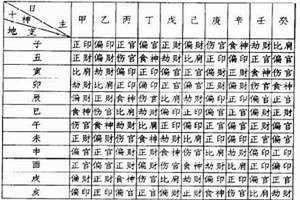 日
十神 主 甲 乙 丙 丁 戊 己 庚 辛 壬 癸
地支
子 正印 偏印 正官 偏官 正财 偏财 伤官 食神 劫财 比肩
丑 正财 偏财 伤官 食神 劫财 比肩 正印 偏印 正官 偏官
寅 比肩 劫财 偏印 正印 偏官 正官 偏财 正财 食神 伤官
卯 劫财 比肩 正印 偏印 正官 偏官 正财 偏财 伤官 食神
辰 偏财 正财 食神 伤官 比肩 劫财 偏印 正印 偏官 正官
巳 食神 伤官 比肩 劫财 偏印 正印 偏官 正官 偏财 正财
午 伤官 食神 劫财 比肩 正印 偏印 正官 偏官 正财 偏财
未 正财 偏财 伤官 食神 劫财 比肩 正印 偏印 正官 偏官
申 偏官 正官 偏财 正财 食神 伤官 比肩 劫财 偏印 正印
酉 正官 偏官 正财 偏财 伤官 食神 劫财 比肩 正印 偏印
戌 偏财 正财 食神 伤官 比肩 劫财 偏印 正印 偏官 正官
亥 偏印 正印 偏官 正官 偏财 正财 食神 伤官 比肩 劫财